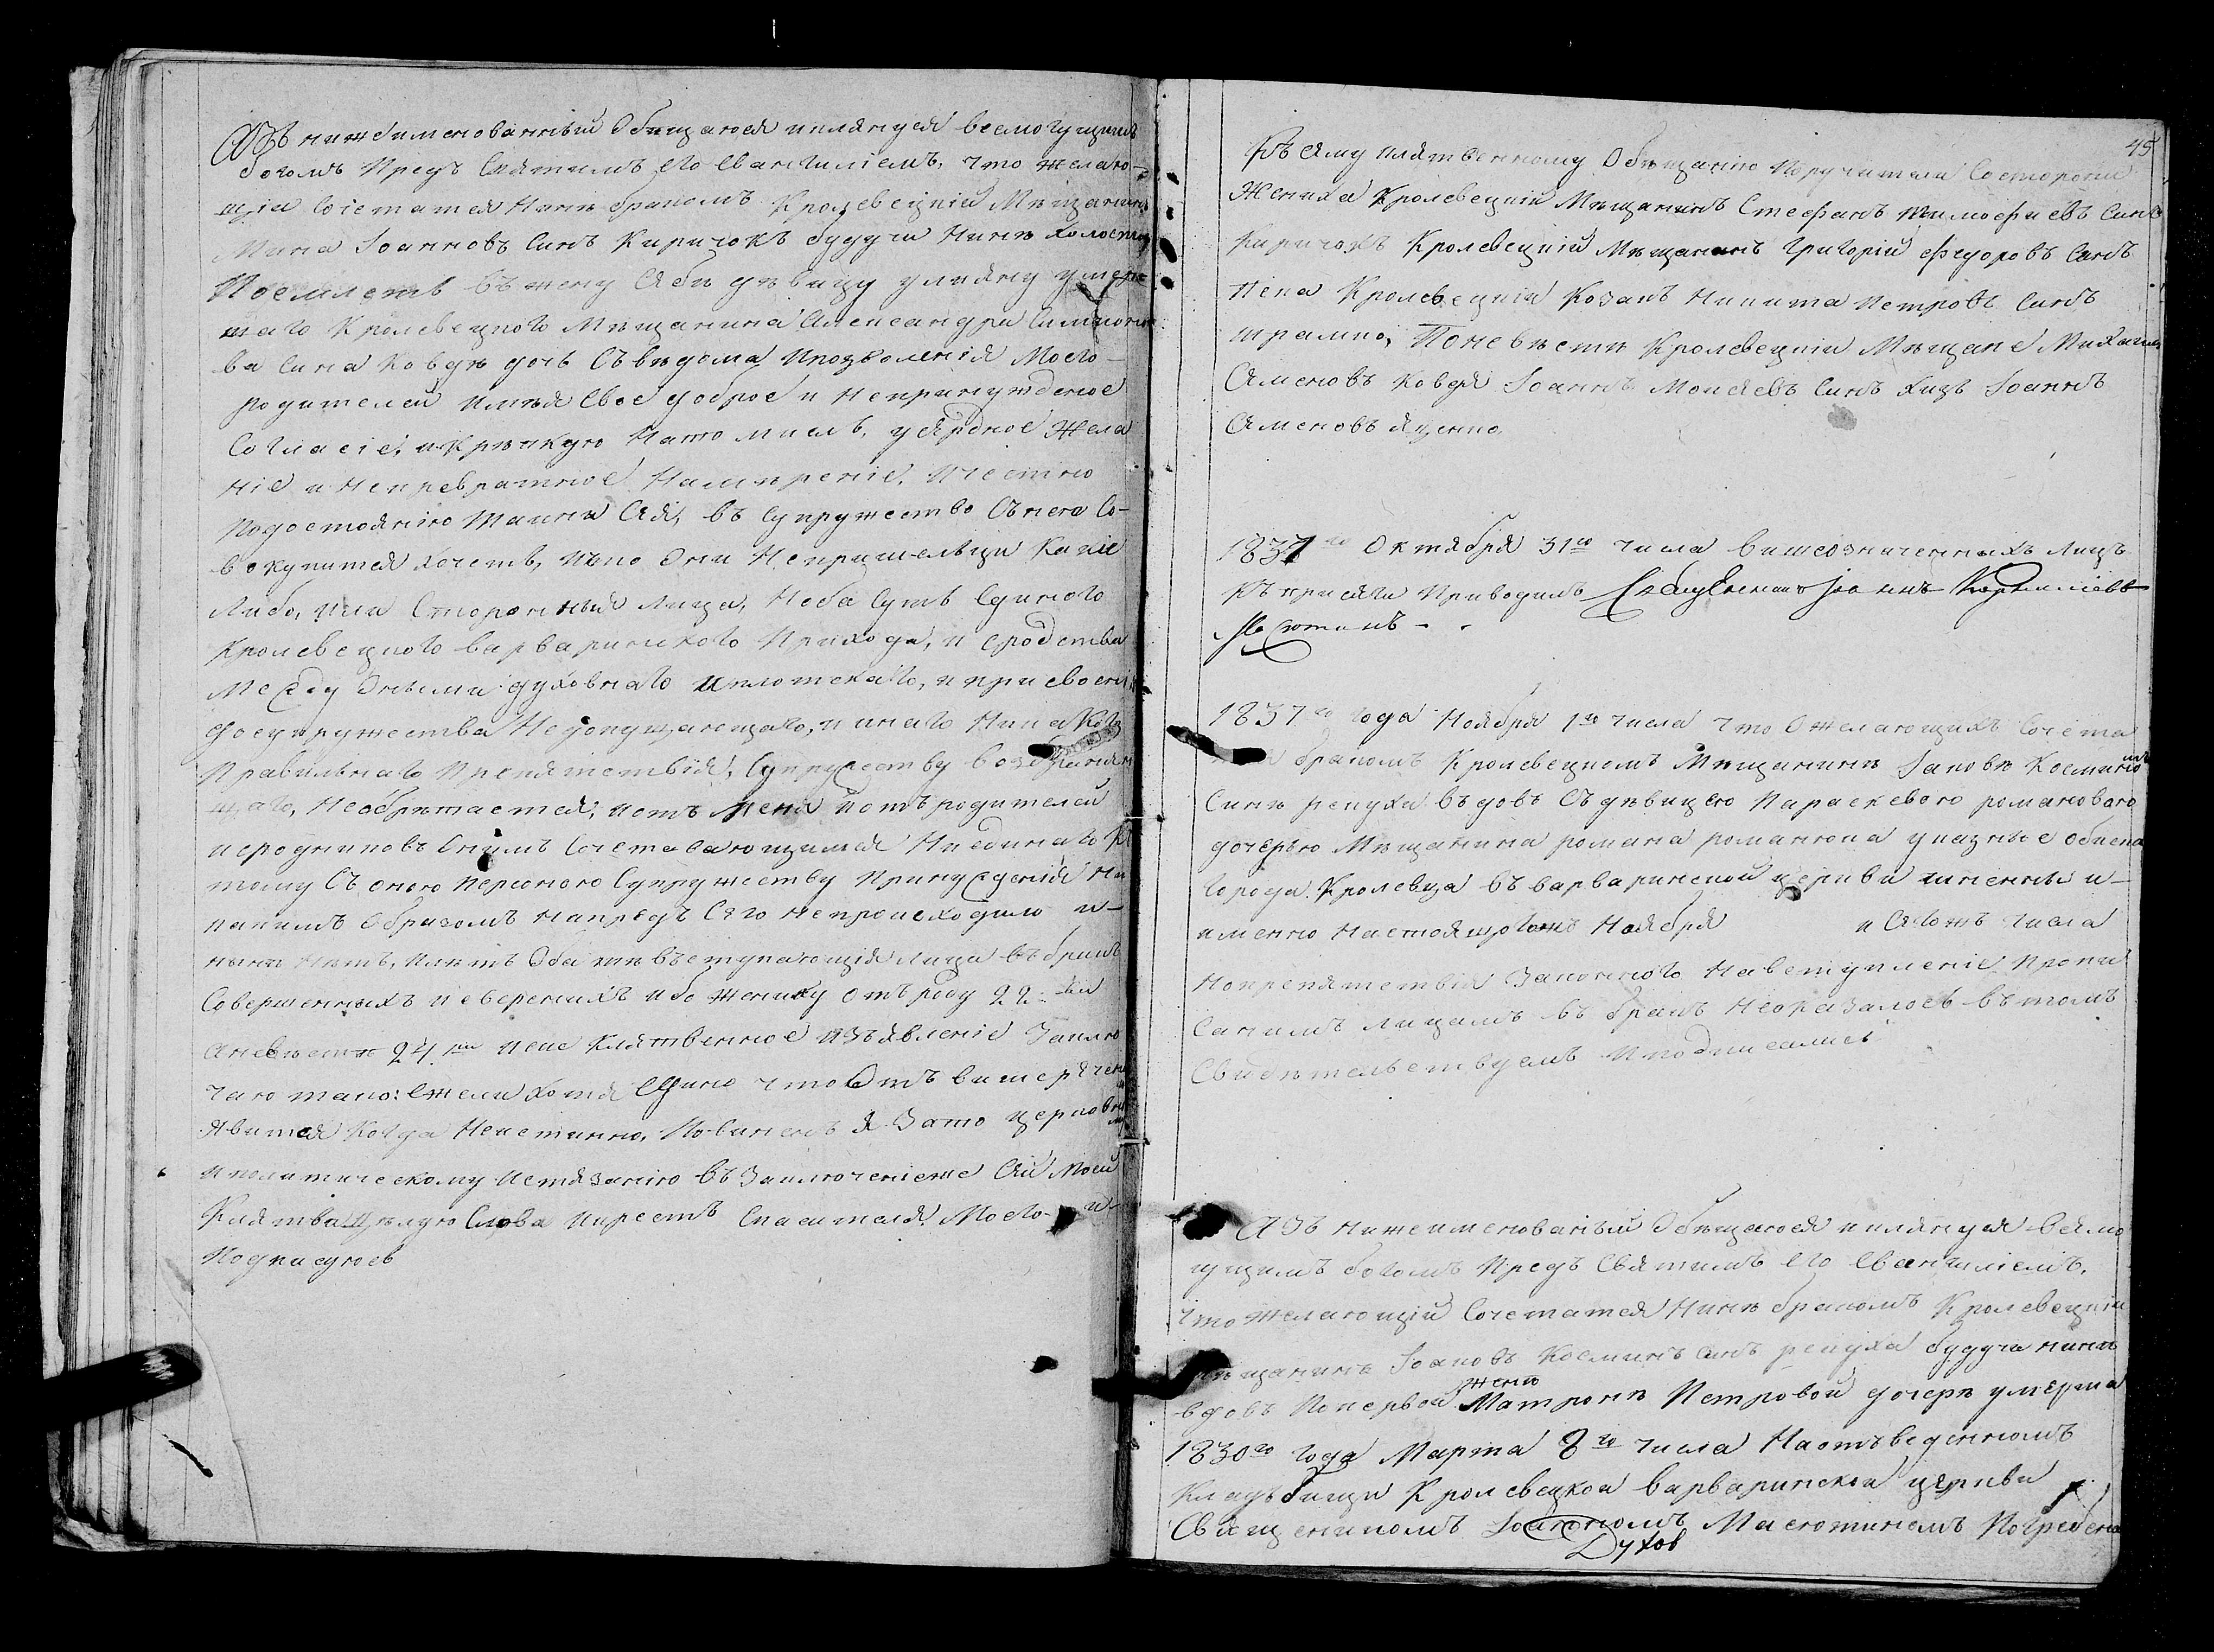 Азъ нижеименованный Обещаюся иклянуся всемогущимъ
богомъ Предъ Святимъ его Евангилiемъ, что желаю-
щiи Сочетатся Нинѣ бракомъ Кролевецкiй Мѣщанинъ
Мина Iоанновъ Синъ Киричокъ будучи Нинѣ холостъ
Поемлетъ въ жену Себѣ дѣвицу улияну умер
шаго Кролевецкого Мѣщанина Александра
ва Сина Ковдѣ дочь Съвѣдома Ипозволенiя Моего
родителей Имѣя Свое доброе и Непринужденое
Согласiе, и Крѣпкую Нато мисль, усердное Жела
нiе и Непревратное Намѣренiе, Честно
Подостоянiю Тайни Сея, въ Супружество Снею Со-
вокупится хочетъ, Ичто Они Непришельци Какiе
Либо, или Сторонныя Лица, Ноба Суть Единого
Кролевецкого варваринского Прихода, и сродства
Между Оными духовнаго иплотскаго, и присвоенiя
досупружества Недопущающаго, и инаго Никакого
Правильнаго Препятствiя, Супружеству возбраняю
щаго, Необрѣтается, иотъ меня иотъ родителей
исродниковъ Онимъ Сочетавающимся Ниединаго К
тому Съ оною персоною Супружеству Принужденiя Ни
какимъ Образомъ Напредъ Сего Непроисходило и-
нынѣ Нѣтъ, Илѣтъ Оба въступающiя Лица въ бракъ
Совершенныхъ ибо жениху Отъ роду 22
Аневѣстѣ 24 исие Клятвенное изъявленiе Заклю
чаю тако: Ежели хотя Едино что Отъ вишеречен
явится Когда Неистинно, Повиненъ Я Зато церковн
иполитическому Истязанiю въ Заключенiеже Сей моей
Клятви Цѣлую Слова Икрестъ Спасителя Моего и-
Подписуюсь
45
Къ сему клятвенному Обѣщанiю Поручители Состорони
Жениха Кролевецкiй Мѣщанинъ Стефанъ тимофиевъ Синъ
Киричокъ Кролевецкiй Мѣщанинъ Григорiй федоровъ Синъ
Кролевецкiй Козакъ Никита Петровъ Синъ
Поневѣсти Кролевецкiи Мѣщане Михаилъ
Семеновъ Ковдя Iоаннъ Моисеевъ Синъ Iоаннъ
Семеновъ яценко
1837го Октября 31го числа вишеозначенныхъ Лицъ
Къ присяги Приводилъ Священникъ
1837го года Ноября 1го числа что Ожелающихъ Сочета
бракомъ Кролевецкомъ Мѣщанинѣ Iаковѣ Косминомъ
Синѣ репухи въдовъ Съ дѣвицею Параскевою романовою
дочерью Мѣщанина романа романюка указные обиска
города Кролевца въ варваринской церкви чинены и-
именно Настоящогожъ Ноября и Сегожъ числа
Нопрепятствiя Законного Навступленiе Пропи
Санимъ лицамъ въ бракъ Неоказалось въ томъ
Свидѣтельствуемъ Иподписались
АЗъ нижеименованый Обѣщаюся иклянуся всемо
гущимъ богомъ Предъ Святимъ его Евангилiемъ,
что желающiй Сочетатся Нинѣ бракомъ Кролевецкiи
мѣщанинъ Iаковъ Косминъ синъ репуха будучи нинѣ
вдовъ Попервой жены Матронѣ Петровой дочерѣ умерша
1830го года Марта 8го числа Наотъведенномъ
Кладъбищи Кролевецкой варваринской церкви
Священикомъ Iоанномъ Погребена
Духов